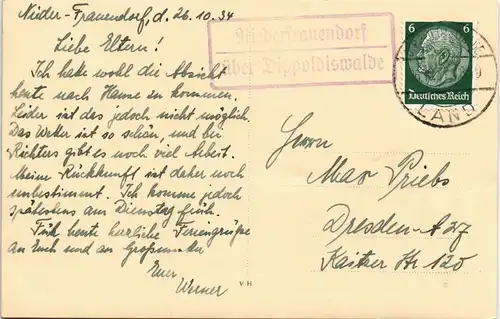 Nieder-Frauendorf, d. 26.10.34
Liebe Eltern!
Ich hatte wohl die Absicht
heute nach Hause zu kommen.
Leider ist des jedoch nicht möglich.
Das Wetter ist so schön, und bei
Richters gibt es noch viel Arbeit.
Meine Rückkunft ist daher noch
unbestimmt. Ich komme jedoch
spätestens am Dienstag früh.
Für heute herzliche Feriengrüße
an Euch und an Großmutter
Euer
Werner
Niederfrauendorf
über Dippoldiswalde
6 6
Deutsches Reich
LAND
Herrn
Max Priebs
Dresden-A 27
Kaitzer Str 120
VH